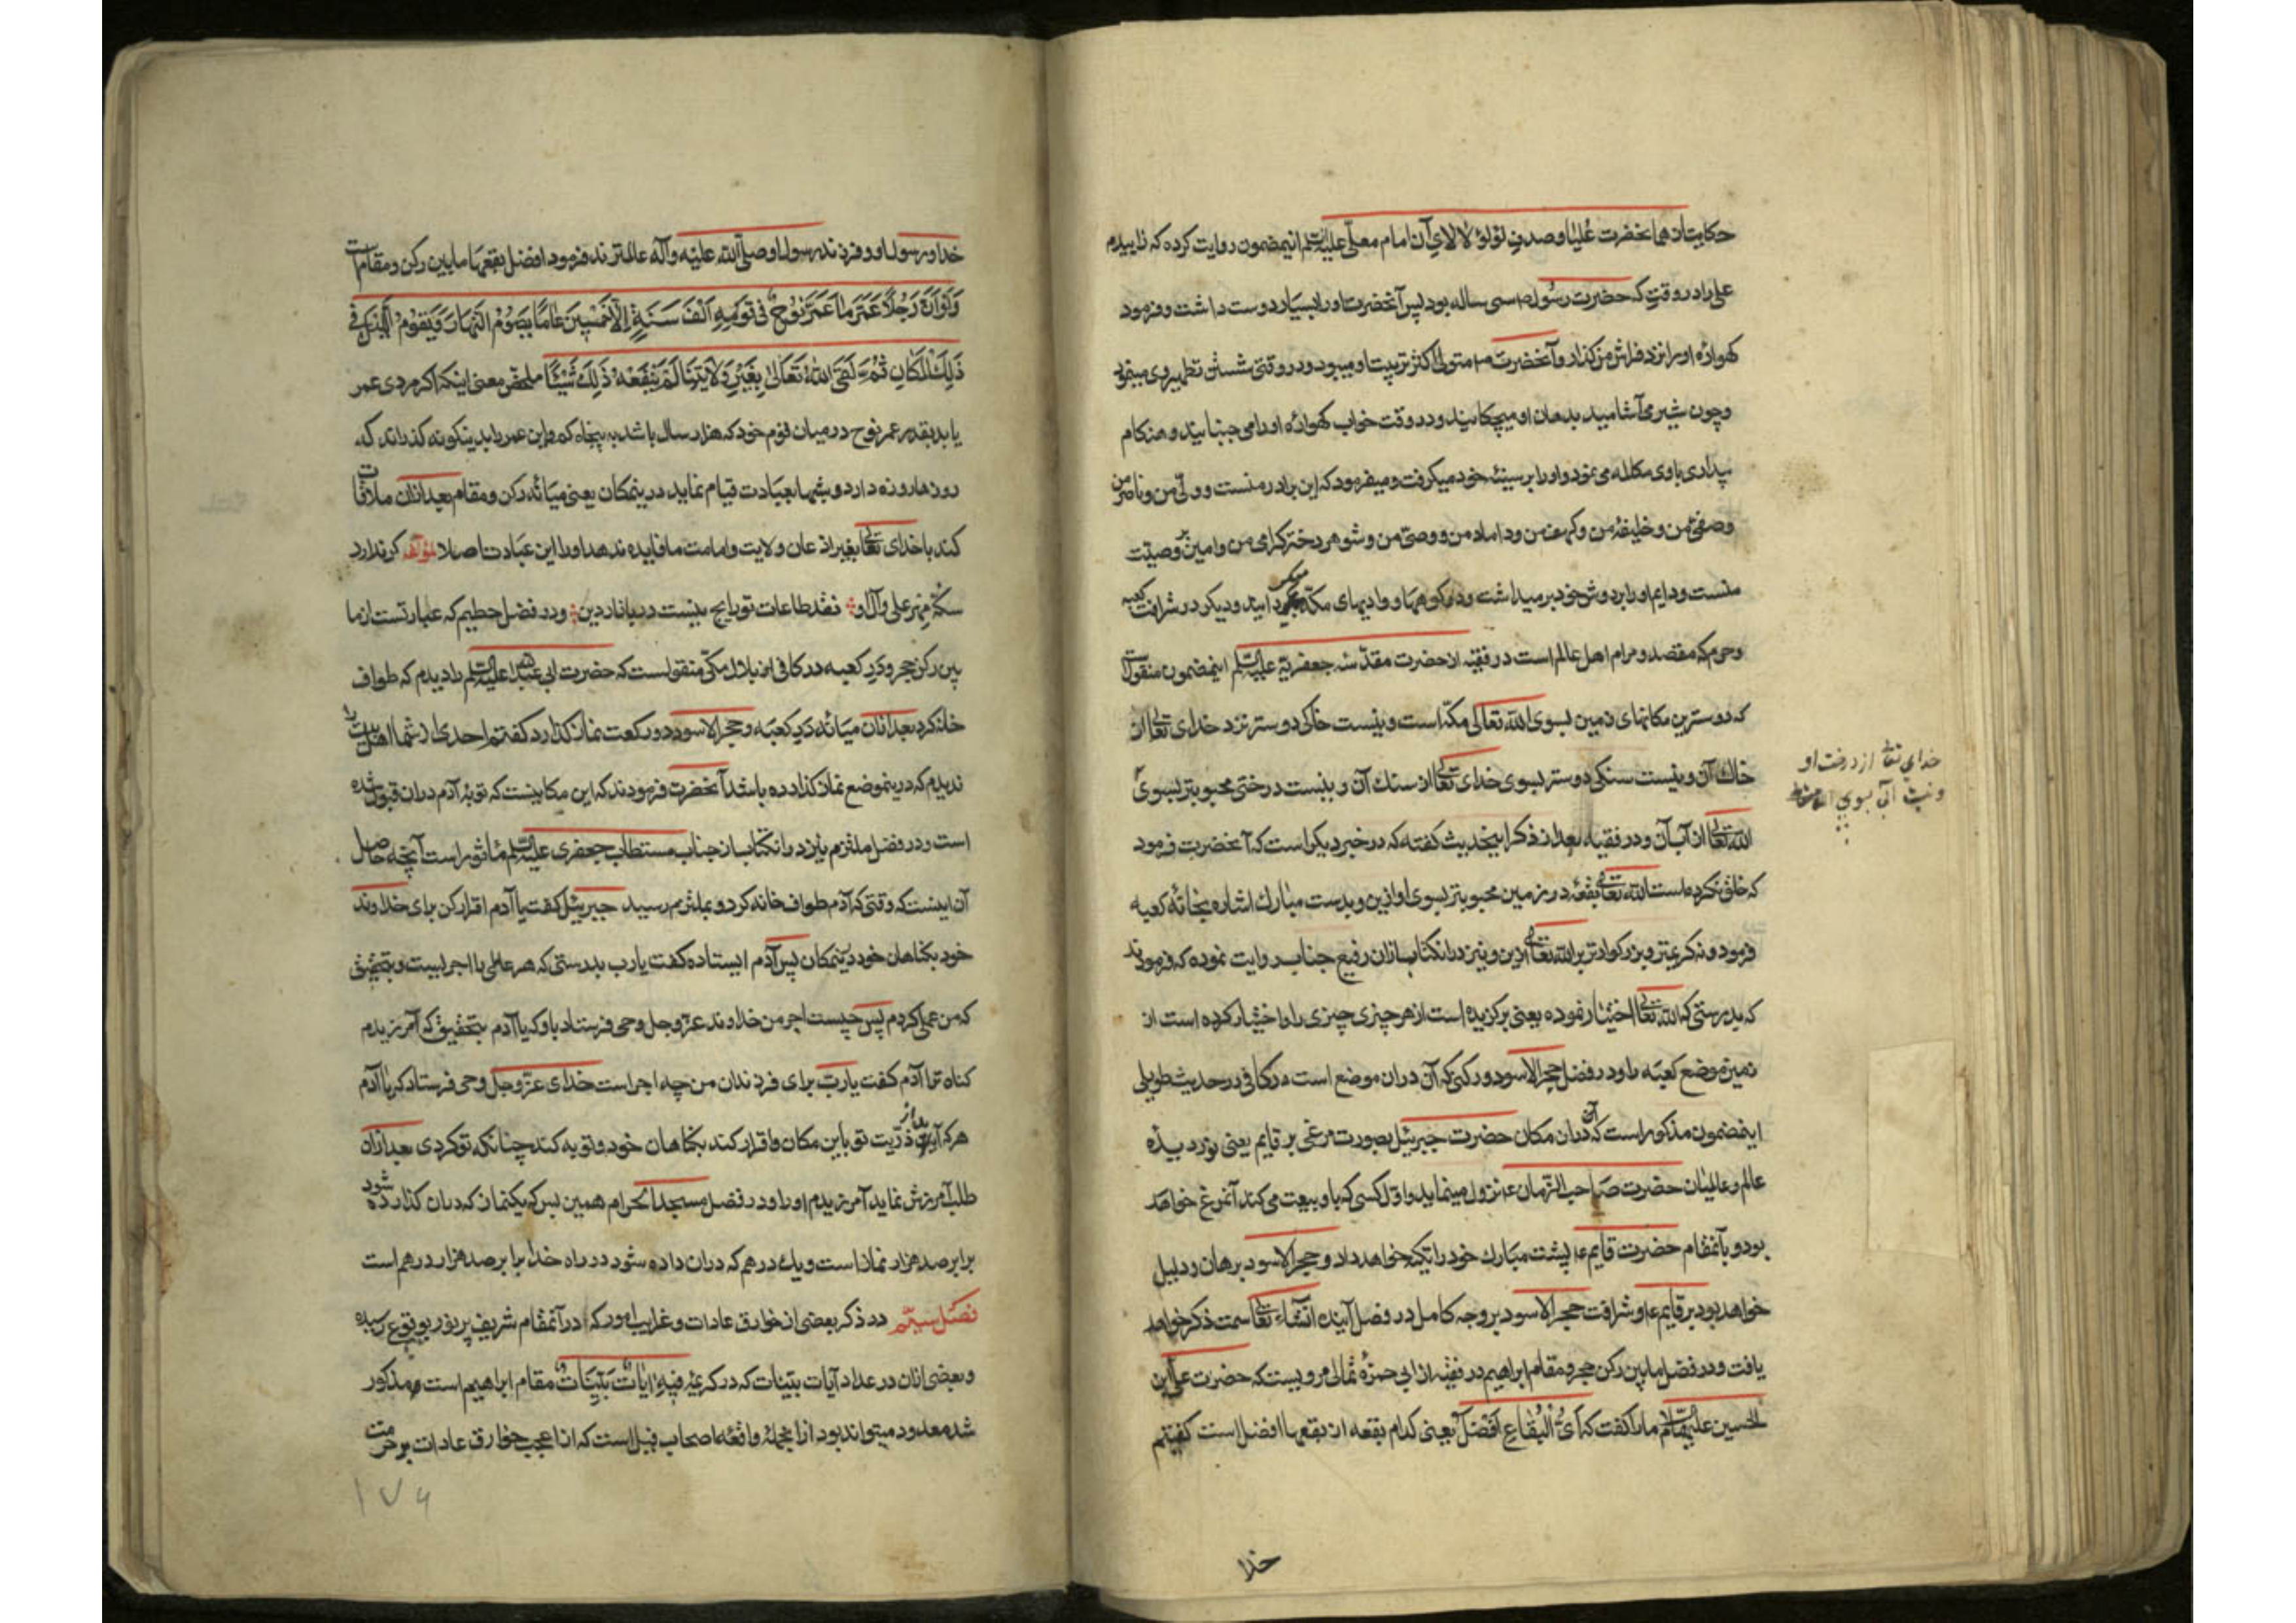 حکایتان هم آنحضرت علیا و صدف لؤلؤ لالای آن امام معلّی علیه السلام اینمضمون روایت کرده که زاییدم
علی را در وقتی که حضرت رسول ص سی ساله بود پس آنحضرت او را بسیار دوست داشت و فرمود
کهوارهٔ او را نزد فراش من گذار و آنحضرت ص متولی اکثر تربیت او میبود و در وقتی شستن تطهیر وی مینمود
و چون شیر می آشامید بدهان او میچکانید و در وقت خواب کهوارهٔ او را می جنبانید و هنکام
بیداری با وی مکالمه می نمود و او را بر سینهٔ خود میکرفت و میفرمود که این برادر منست و ولی من و ناصر من
و صفی من و خلیفهٔ من و کهف من و داماد من و وصی من و شوهر دختر کرامی من و امین وصیت
منست و دایم او را بر دوش خود بر میداشت و در کوهها و وادیهای مکه میکردانید و دیکر در شرافت کعبه
و حرم که مقصد و مرام اهل عالم است در فقیه از حضرت مقدسهٔ جعفریه علیه السلام اینمضمون منقولست
که دوسترین مکانهای زمین بسوی الله تعالی مکه است و نیست خاکی دوستر نزد خدای تعالی از
خاك آن و نیست سنکی دوستر بسوی خدای تعالی از سنك آن و نیست درختی محبوبتر بسوی
خدای تعالی از درخت او
و نیست آبی بسوی
الله تعالی از آب آن و در فقیه بعد از ذکر اینحدیث کفته که در خبر دیکر است که آنحضرت فرمود
که خلق نکرده است الله تعالی بقعهٔ در زمین محبوبتر بسوی او ازین و بدست مبارك اشاره بخانهٔ کعبه
فرمود و نه کریمتر و بزرکوارتر بر الله تعالی ازین و نیز در انکتاب ازان رفیع جناب روایت نموده که فرمودند
که بدرستی که الله تعالی اختیار نموده یعنی برکزیده است از هر چیزی چیزی را و اختیار کرده است از
زمین موضع کعبه را و در فضل حجر الاسود و رکنی که آن دران موضع است در کافی در حدیث طویلی
اینمضمون مذکور است که دران آن مکان حضرت جبرئیل بصورت مرغی بر قایم یعنی نور دیده
عالم و عالمیان حضرت صاحب الزمان ع نزول مینماید و اول کسی که باو بیعت می کند آنمرغ خواهد
بود و بآنمقام حضرت قایم ع پشت مبارك خود را تکیه خواهد داد و حجر الاسود برهان و دلیل
خواهد بود بر قایم ع و شرافت حجر الاسود بر وجه کامل در فصل آینده انشاء الله تعالی سمت ذکر خواهد
یافت و در فضل مابین رکن حجر و مقام ابراهیم در فقیه از ابی حمزهٔ ثمالی مرویست که حضرت علی ابن
الحسین علیه السلام ما را کفت که اَیُّ الْبِقَاعِ اَفْضَلُ یعنی کدام بقعه از بقعها افضل است کفتیم
خدا
خدا و رسول او و فرزند رسول او صلی الله علیه و آله عالمترند فرمود افضل بقعها مابین رکن و مقام است
وَلَوْ اَنَّ رَجُلًا عَمَّرَ مَا عَمَّرَ نُوحٌ فی قَوْمِهِ اَلْفَ سَنَةٍ اِلَّا خَمْسِینَ عَامًا یَصُوْمُ النَّهَارَ وَیَقُوْمُ الَّیْلَ فی
ذَلِكَ الْمَکَانِ ثُمَّ لَقِیَ اللهَ تَعَالَی بِغَیْرِ وَلَایَتِنَا لَمْ یَنْفَعْهُ ذَلِكَ شَیْئًا ملخص معنی اینکه اکر مردی عمر
یابد بقدر عمر نوح در میان قوم خود که هزار سال باشد به پنجاه کم و این عمر را بدینکونه کذراند که
روزها روزه دارد و شبها بعبادت قیام نماید در ینمکان یعنی میانهٔ رکن و مقام بعد ازان ملاقات
کند با خدای تعالی بغیر اذعان ولایت و امامت ما فایده ندهد او را این عبادت اصلا لمؤلفه کر ندارد
سکهٔ مهر علی و آل او نقد طاعات تو رایج نیست در بازار دین و در فضل حطیم که عبارتست از ما
بین رکن حجر و در کعبه در کافی از بلال مکی منقولست که حضرت ابی عبد الله علیه السلام را دیدم که طواف
خانه کرد بعد ازان میانهٔ در کعبه و حجر الاسود دو رکعت نماز کذارد کفتم احدی از شما اهل بیت را
ندیدم که درینموضع نماز کذارده باشد آنحضرت فرمودند که این مکانیست که توبهٔ آدم دران قبول شده
است و در فضل ملتزم نیز در انکتاب از جناب مستطاب جعفری علیه السلام مأثور است آنچه حاصل
آن اینست که وقتی که آدم طواف خانه کرد و بملتزم رسید جبرئیل کفت یا آدم اقرار کن برای خداوند
خود بکناهان خود درینمکان پس آدم ایستاده کفت یا رب بدرستی که هر عاملی را اجریست و بتحقیق
که من عمل کردم پس چیست اجر من خداوند عز و جل وحی فرستاد باو که یا آدم بتحقیق که آمرزیدم
کناه ترا آدم کفت یا رب برای فرزندان من چه اجر است خدای عز و جل وحی فرستاد که یا آدم
هر که آید از ذریت تو باین مکان و اقرار کند بکناهان خود و توبه کند چنانکه تو کردی بعد ازان
طلب آمرزش نماید آمرزیدم او را و در فضل مسجد الحرام همین بس که یکنماز که دران کذارده شود
برابر صد هزار نماز است و یك درهم که دران داده شود در راه خدا برابر صد هزار درهم است
فصل سیّم در ذکر بعضی از خوارق عادات و غرایب امور که در آنمقام شریف پر نور بوقوع رسیده
و بعضی ازان در عداد آیات بینات که در کریمهٔ فِیْهِ اٰیَاتٌ بَیِّنَاتٌ مقام ابراهیم است مذکور
شد معدود میتواند بود از انجمله واقعهٔ اصحاب فیل است که از اعجب خوارق عادات بر حرمت
۱۷۶